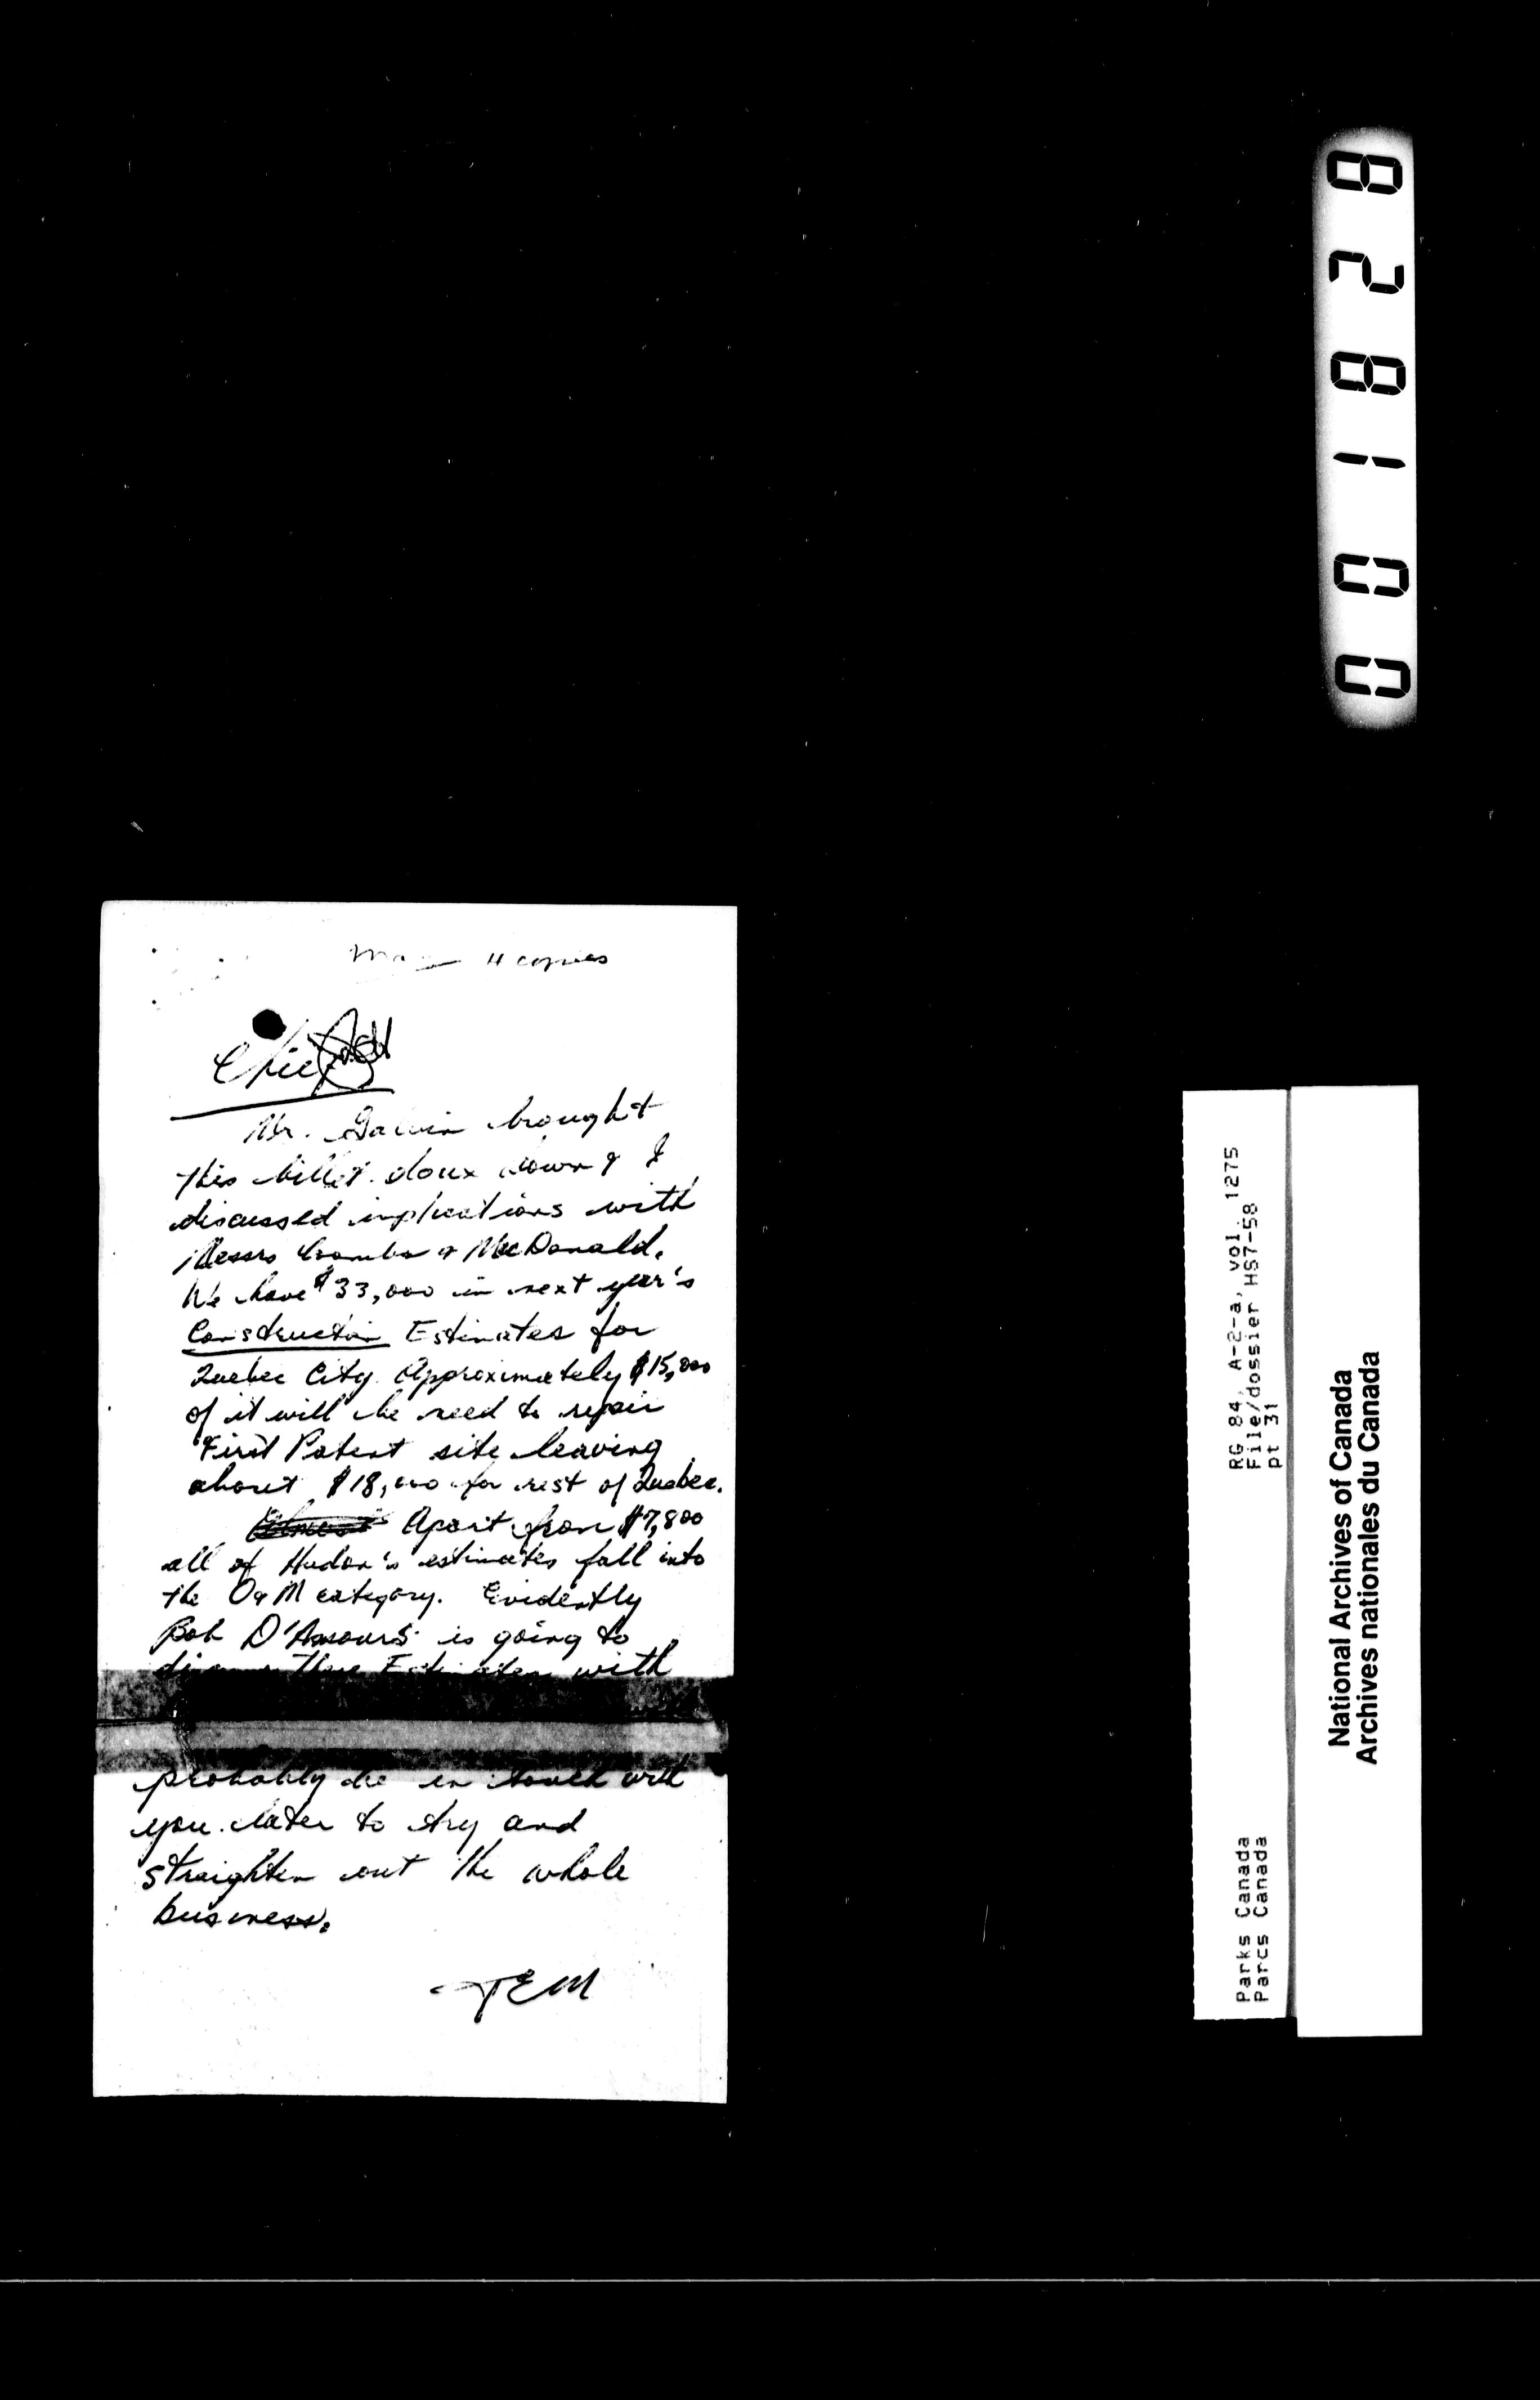 4 copies
Chief
Mr. Galvin brought
this billet doux down & I
discussed implications with
Messrs Coombs & MacDonald.
We have $33,000 in next year's
Construction Estimates for
Quebec City. Approximately $15,000
of it will be need to repair
First Patent site leaving
about $18,000 for rest of Quebec.
Apart from $7,800
all of Hudon's estimates fall into
the O & M category. Evidently
Bob D'Amours is going to
discuss these Estimates with
probably be in touch with
you later to try and
straighten out the whole
business.
TEM
001828
RG 84, A-2-a, vol. 1275
File/dossier HS7-58
pt 31
Parks Canada
Parcs Canada
National Archives of Canada
Archives nationales du Canada